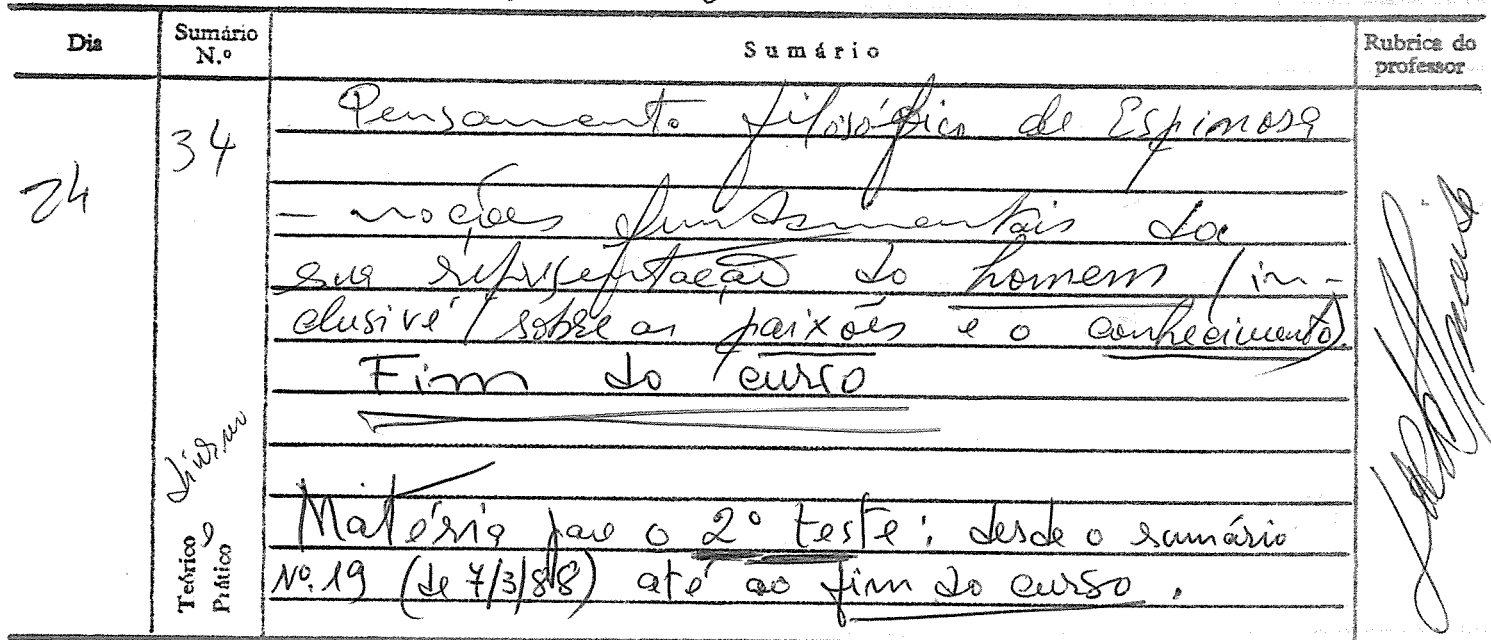 Dia Sumário N.º Sumário Rubrica do professor
24 34 Pensamento filosófico de Espinosa
- noções fundamentais da
sua representação do homem (in-
clusivé sobre as paixões e o conhecimento)
Fim do curso
Diurno
Matéria para o 2º teste: desde o sumário
Nº. 19 (de 7/3/88) até ao fim do curso.
Teórico e Prático